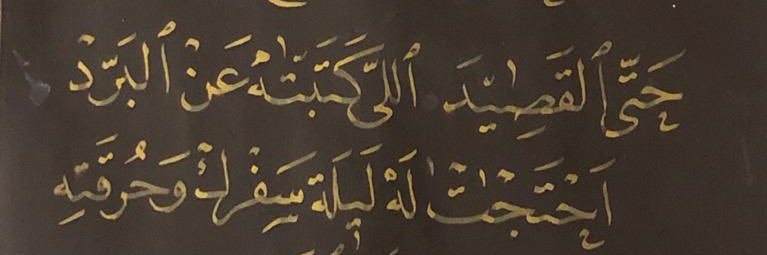 حَتَّى ٱلقَصِيدَ ٱللِّي كَتَبْتَهْ عَنْ ٱلبَرَدْ
اَحْتَجْتْ لَهْ لَيلَة سِفَرْكْ وَحُرقَتِه